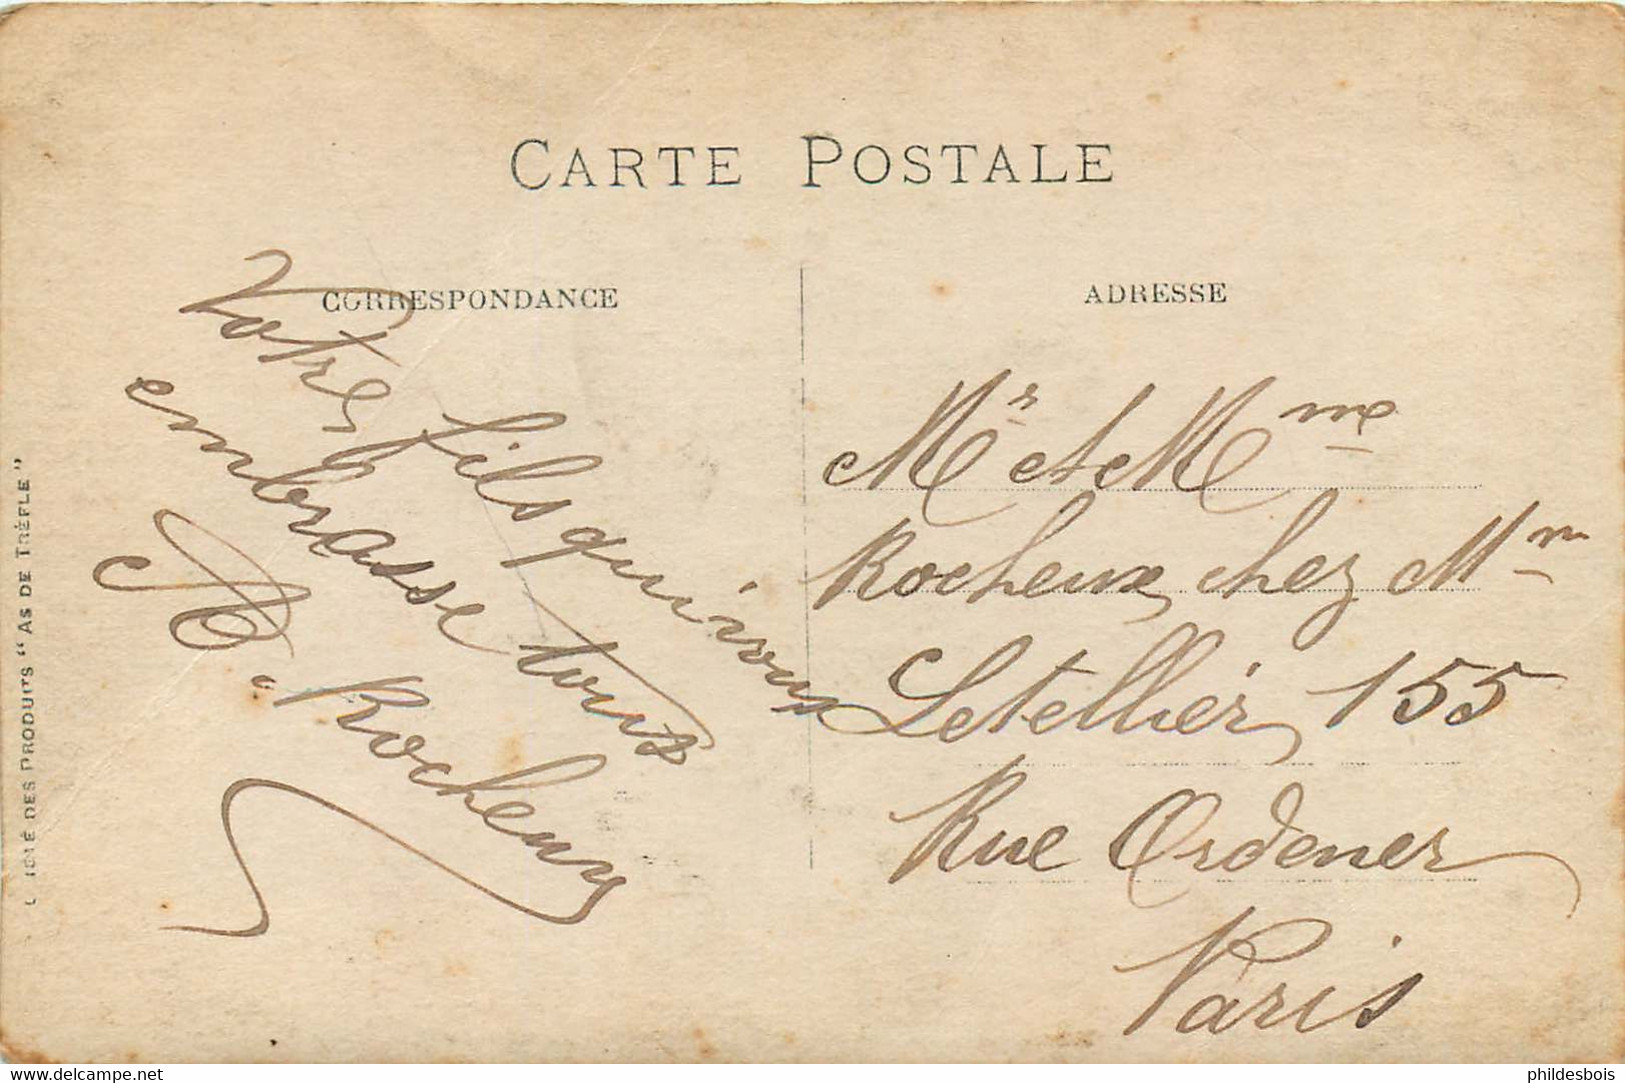 CARTE POSTALE
CORRESPONDANCE
Votre fils qui vous
embrasse tous
M. Rocheux
ADRESSE
Mr et Mme
Rocheux chez Mm
Letellier 155
Rue Ordener
Paris
DES PRODUITS "AS DE TRÈFLE"
www.delcampe.net
phildesbois